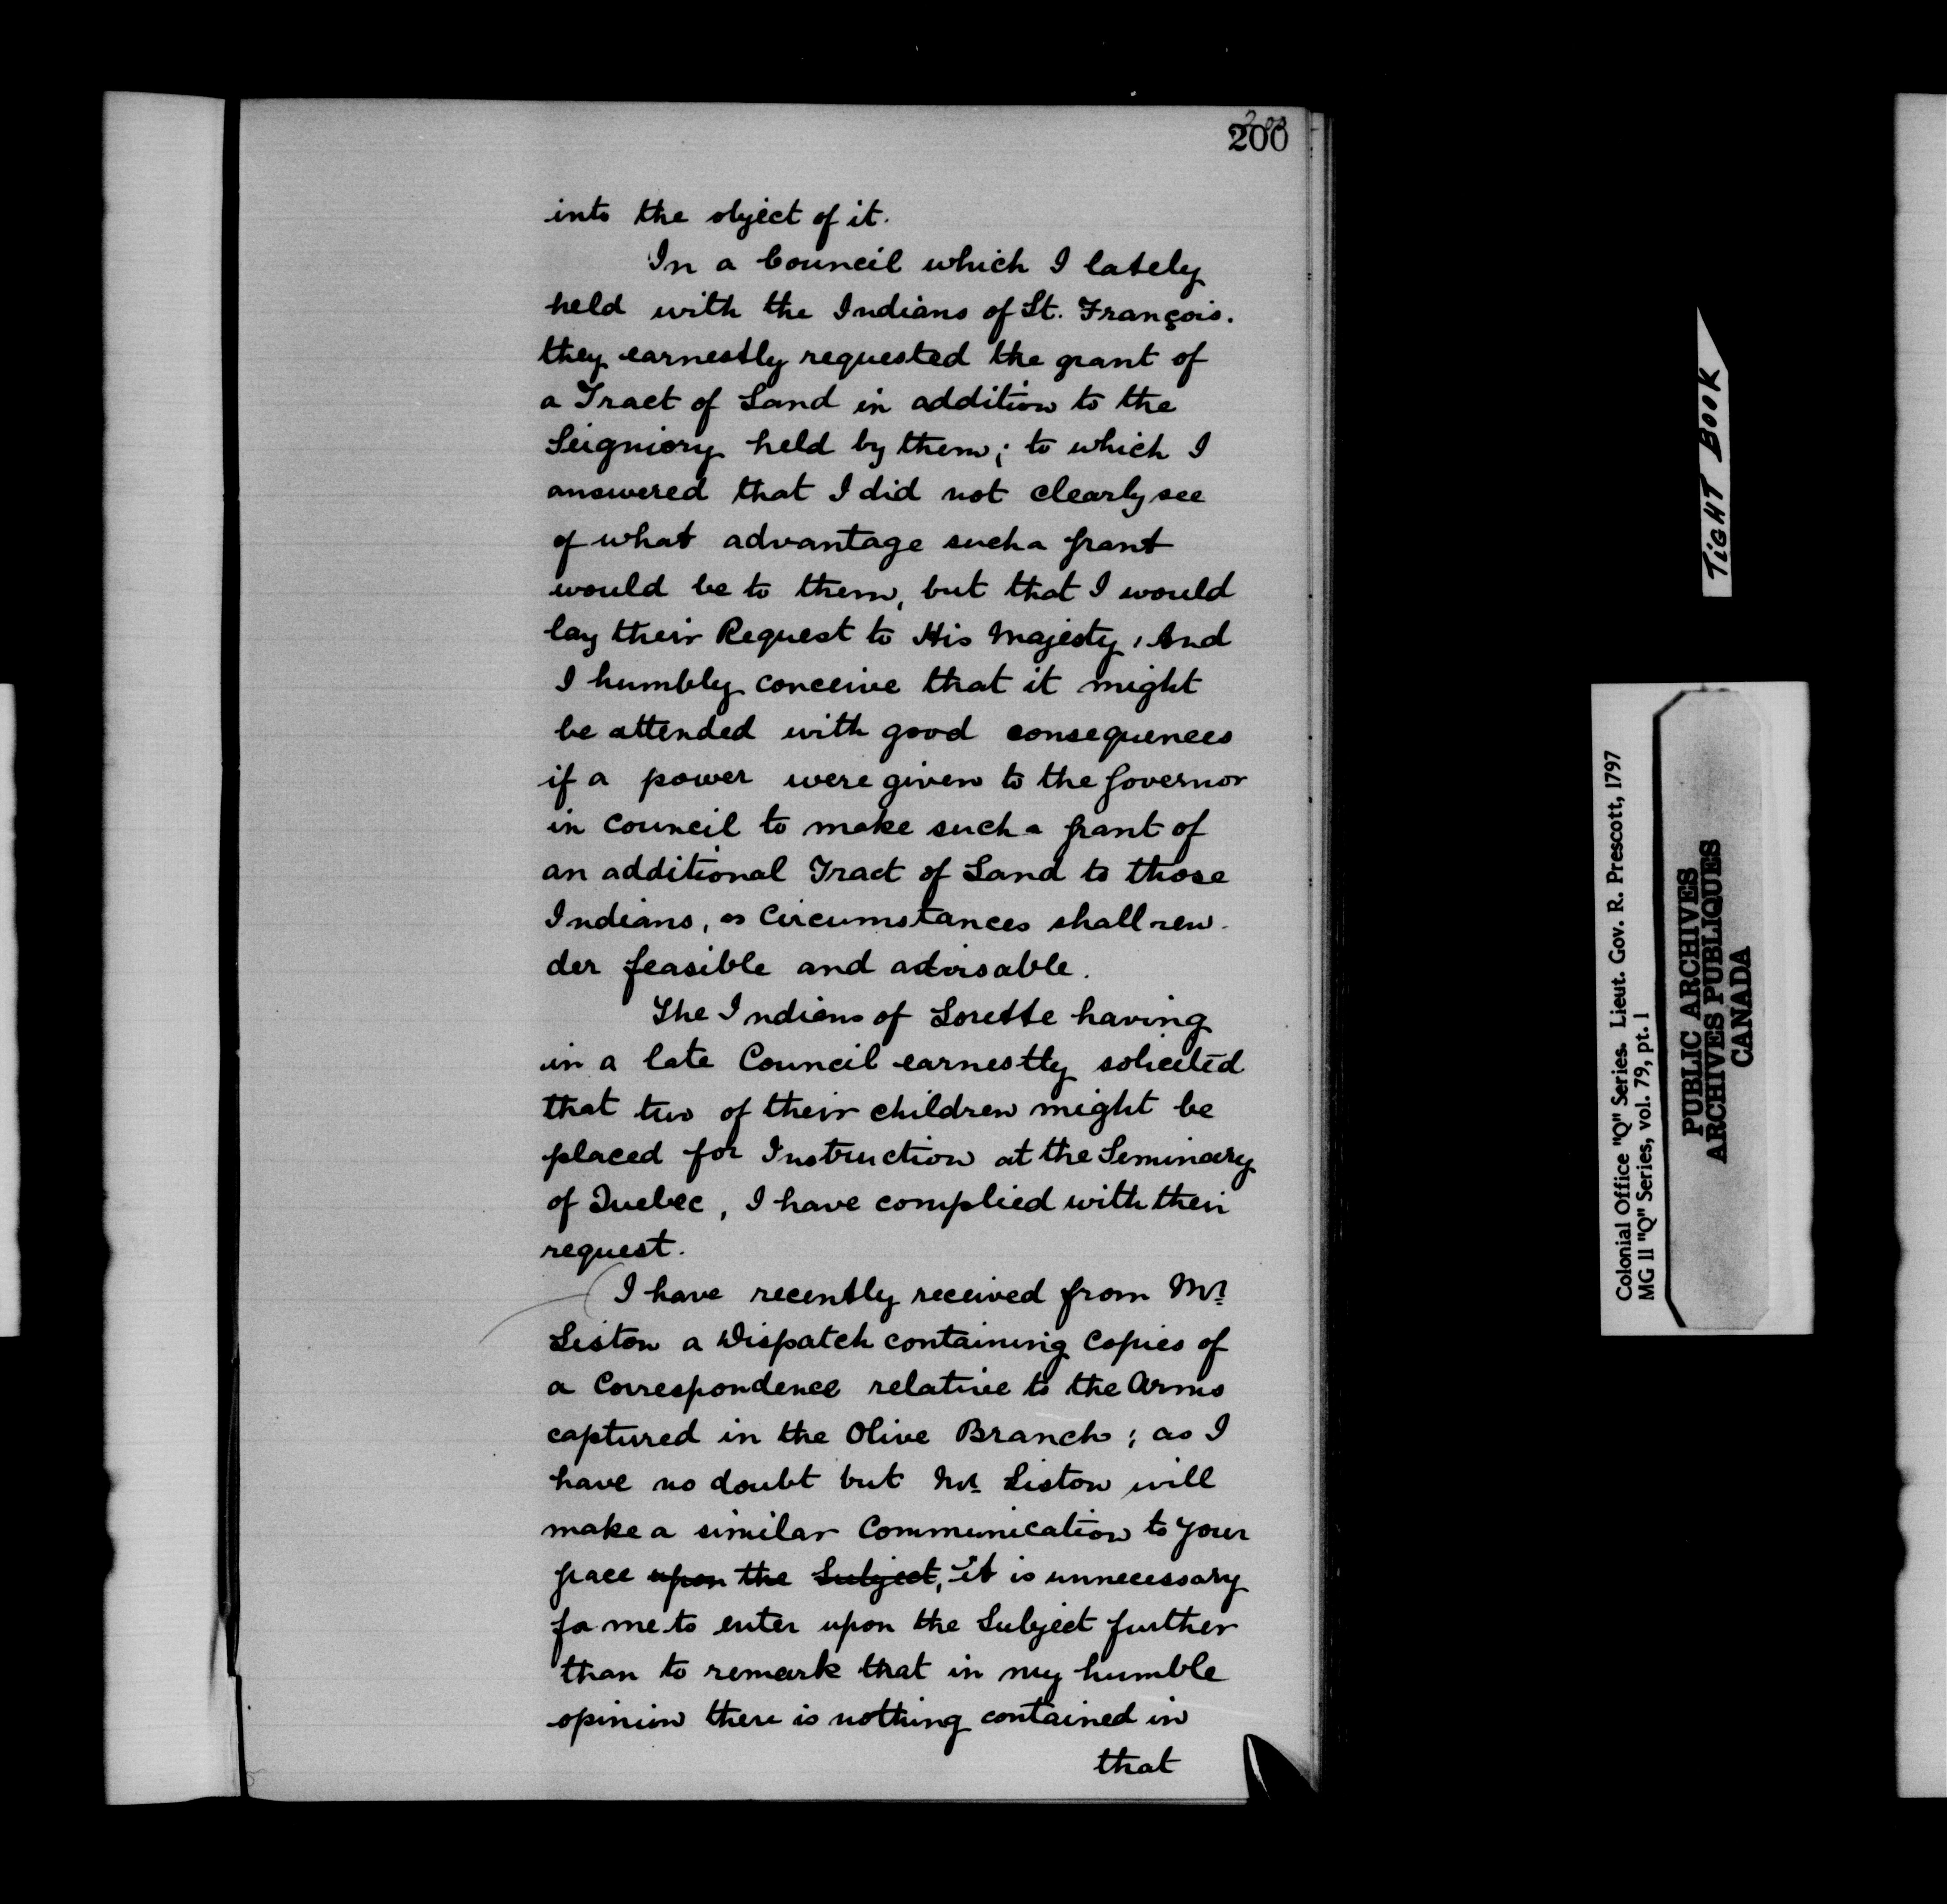 200
into the object of it.
In a Council which I lately
held with the Indians of St. François.
they earnestly requested the grant of
a Tract of Land in addition to the
Seigniory held by them; to which I
answered that I did not clearly see
of what advantage such a grant
would be to them, but that I would
lay their Request to His Majesty, And
I humbly conceive that it might
be attended with good consequences
if a power were given to the Governor
in Council to make such a grant of
an additional Tract of Land to those
Indians, as Circumstances shall ren-
der feasible and advisable.
The Indians of Lorette having
in a late Council earnestly solicited
that two of their children might be
placed for Instruction at the Seminary
of Quebec, I have complied with their
request.
I have recently received from Mr.
Liston a Dispatch containing Copies of
a Correspondence relative to the Arms
captured in the Olive Branch; as I
have no doubt but Mr. Liston will
make a similar Communication to your
grace upon the Subject, it is unnecessary
for me to enter upon the Subject further
than to remark that in my humble
opinion there is nothing contained in
that
TIGHT BOOK
Colonial Office "Q" Series. Lieut. Gov. R. Prescott, 1797
MG 11 "Q" Series, vol. 79, pt. 1
PUBLIC ARCHIVES
ARCHIVES PUBLIQUES
CANADA